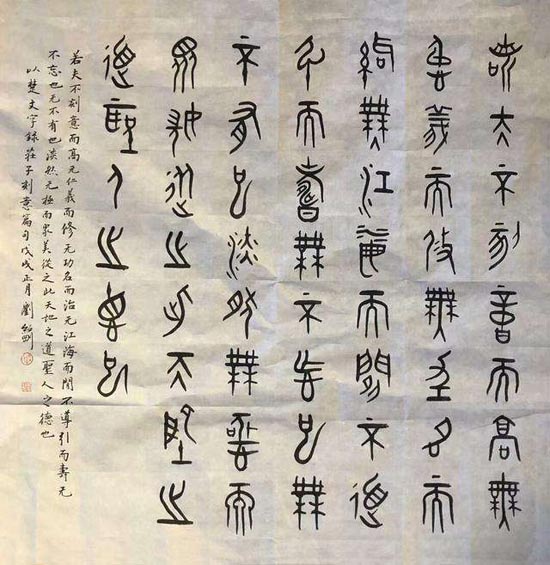 若夫不刻意而高無
仁義而修無功名而
治無江海而閒不導
引而壽無不忘也無
不有也淡然無極而
眾美從之此天地之
道聖人之德也
若夫不刻意而高无仁義而修无功名而治无江海而閒不導引而壽无
不忘也无不有也淡然无極而眾美從之此天地之道聖人之德也
以楚文字録莊子刻意篇句戊戌正月劉紹剛